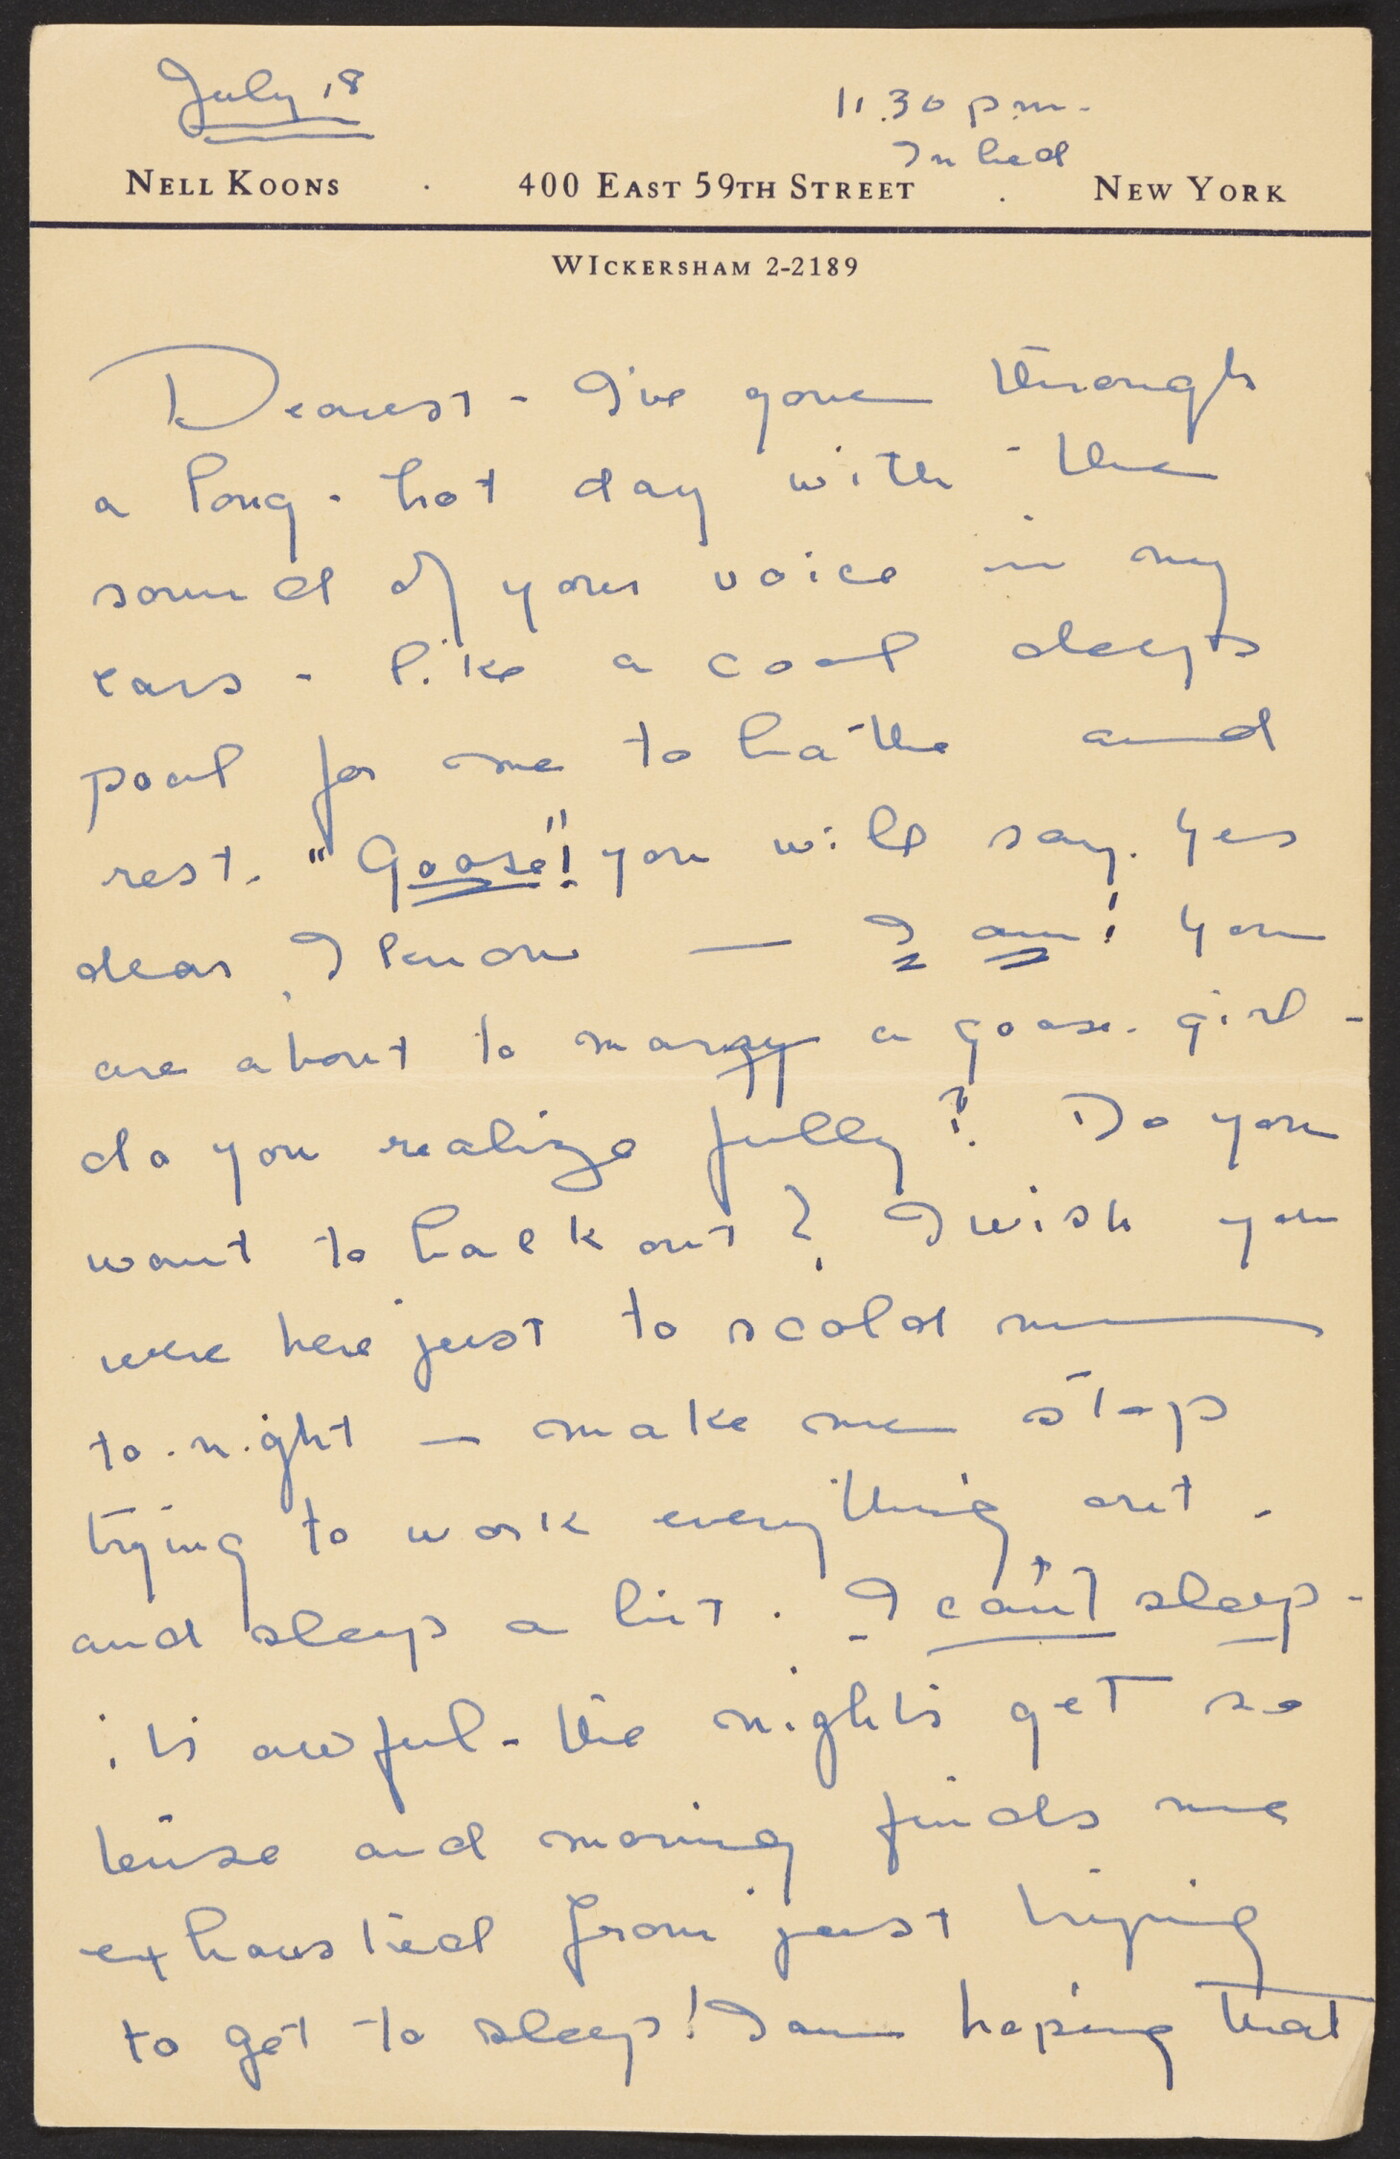 July 18
11.30 p.m.
In bed
NELL KOONS . 400 EAST 59TH STREET . NEW YORK
WICKERSHAM 2-2189
Dearest - I've gone through
a long - hot day with the
sound of your voice in my
ears - like a cool deep
pool for me to bathe and
rest. "Goose"! you will say. Yes
dear I know — I am! You
are about to marry a goose-girl -
do you realize fully? Do you
want to back out? I wish you
were here just to scold me
to-night — make me stop
trying to work everything out -
and sleep a bit. I can't sleep -
its awful - the nights get so
tense and morning finds me
exhausted from just trying
to get to sleep! I am hoping that